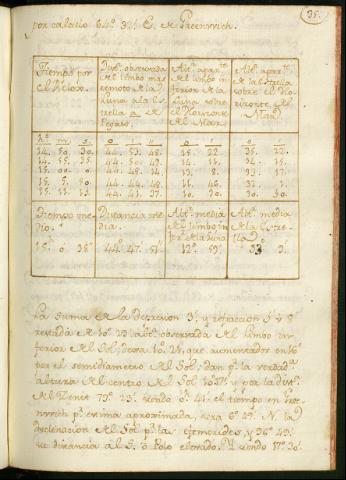 35.
por calculo 64° 32' E. de Greenwich.
Tiempos por el Relox.
Dist.ª observada del limbo mas remoto de la Luna a la Estrella a de Pegaso.
Alt.ª apar.te del limbo inferior de la Luna sobre el Horizonte del Mar.
Alt.ª apar.te de la Estrella sobre el Horizonte del Mar.
h.s m. s. ° ' " ° ' ° '
14. 50. 30. 44. 53. 48. 15. 22. 35. 22.
14. 55. 35. 44. 50. 49. 14. 11. 34. 15.
15. 00. 0. 44. 48. 14. 13. 8. 33. 17.
15. 5. 50. 44. 44. 48. 11. 46. 32. 1.
15. 11. 13. 44. 41. 37. 10. 30. 30. 50.
Tiempo medio.
Distancia media.
Alt.ª media del limbo inf.r de la Luna
Alt.ª media de la Estrella
15. 0' 38" 44° 47' 51" 12° 59' 33° 9'
La suma de la depresion 3' y refraccion 5' 8"
restada de 10° 29' alt.ª observada del limbo inferior
del Sol, dexa 10° 21', que aumentados en 16'
por el semidiametro del Sol, dan p.ª la verdad.ª
altura del centro del Sol 10° 37' y por la dist.ª
del Zenit 79° 23'. siendo 0h 41' el tiempo en Greenwich
p.r estima aproximada, sera 6° 29' N. la
declinacion del Sol p.r las efemerides, y 96° 49'
su distancia al S. o Polo elevado. Y siendo 17° 30'